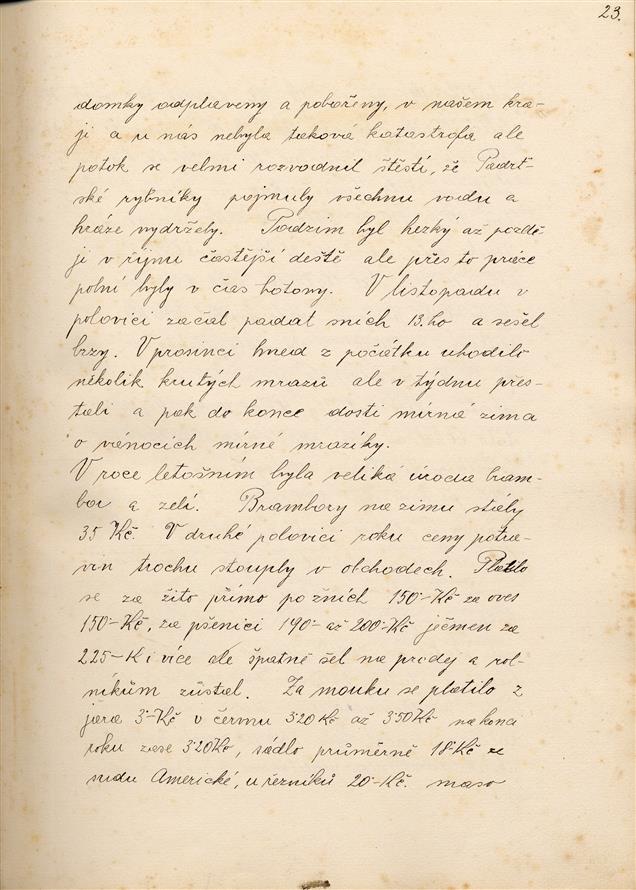 23.
domky odplaveny a pobořeny, v našem kra-
ji a u nás nebyla taková katastrofa ale
potok se velmi rozvodnil štěstí, že Padrť-
ské rybníky pojmuly všechnu vodu a
hráze vydržely. Podzim byl hezký až pozdě-
ji v říjnu častější deště ale přes to práce
polní byly v čas hotovy. V listopadu v
polovici začal padat sních 13.ho a sešel
brzy. V prosinci hned z počátku uhodilo
několik krutých mrazů ale v týdnu přes-
tali a pak do konce dosti mírná zima
o vánocích mírné mrazíky.
V roce letošním byla veliká úroda bram-
bor a zelí. Brambory na zimu stály
35 Kč. V druhé polovici roku ceny potra-
vin trochu stouply v obchodech. Platilo
se za žito přímo po žních 150·- Kč za oves
150·- Kč, za pšenici 190·- až 200·- Kč ječmen za
225 - K i více ale špatně šel na prodej a rol-
níkům zůstal. Za mouku se platilo z
jara 3·- Kč v červnu 3·20 Kč až 3·50 Kč na konci
roku zase 3·20 Kč, sádlo průměrně 18·- Kč
Americké, u řezníků 20·- Kč. maso